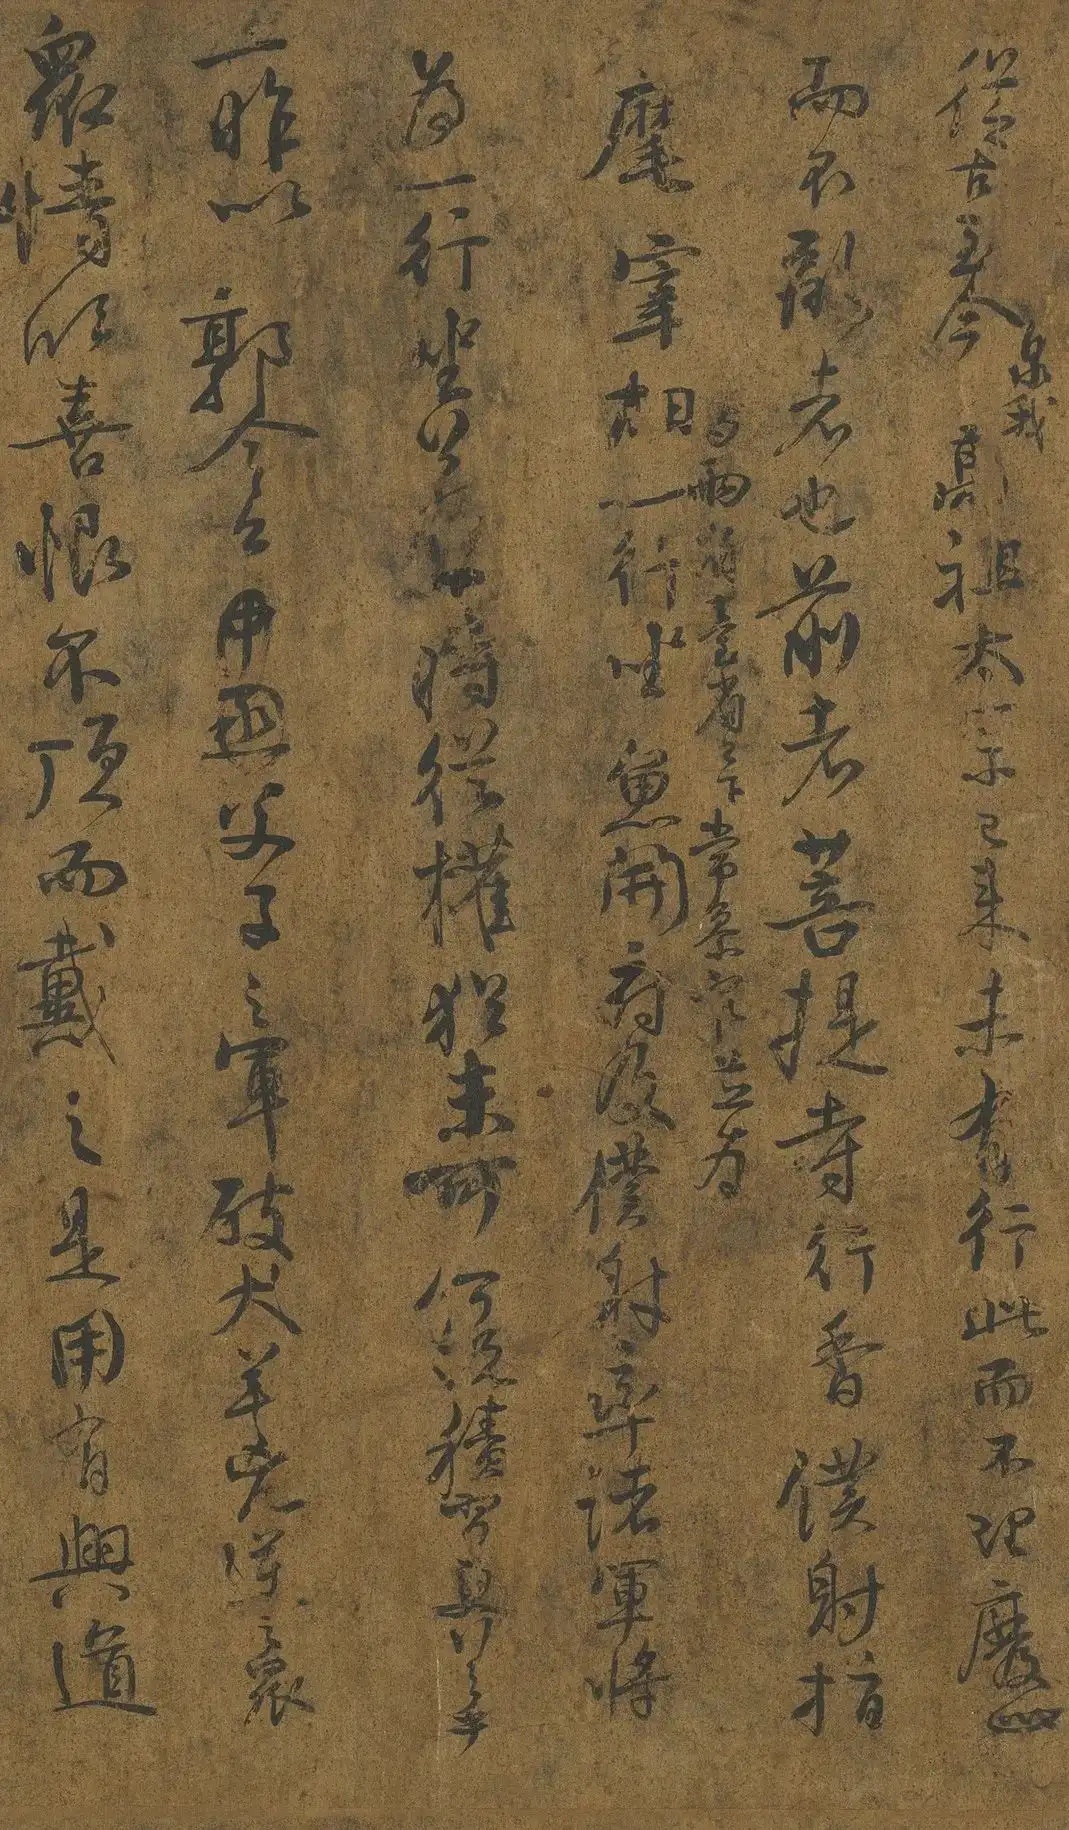 從古至今泉我高祖太宗已來未有行此而不理廢此
而不亂者也前者菩提寺行香僕射指
麾宰相與兩省臺省已下常參官並爲一行坐魚開府及僕射率諸軍將
爲一行坐若一時從權猶未可何況積習更行之乎
一昨以郭令公父子之軍破犬羊兇逆之衆
衆情欣喜恨不頂而戴之是用有興道